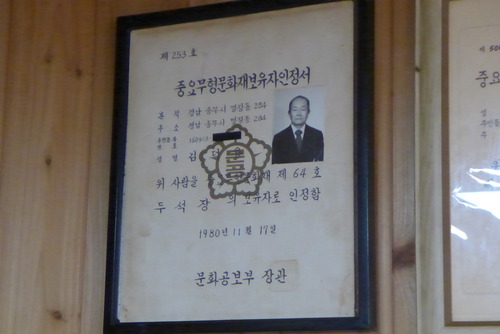 제 253 호
중요무형문화재보유자인정서
본 적 경남 충무시 명정동 284
주 소 경남 충무시 명정동 284
성 명 김
위 사람을 중요 무형문화재 제 64 호
두 석 장 의 보유자로 인정함
1980년 11월 17일
문화공보부 장관
제
중요